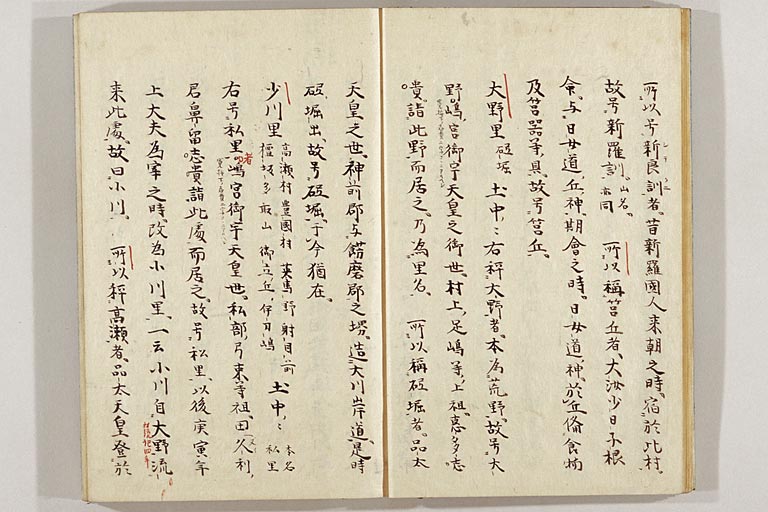 所以号新良訓者、昔新羅國人来朝之時、宿於此村、
故号新羅訓 山名亦同 所以稱筥丘者、大汝少日子根
命、与日女道丘神期會之時、日女道神、於丘俻食物
及筥器等具、故号筥丘、
大野里 砥堀 土中ミ 右稱大野者、本為荒野、故号大
野、嶋宮御宇天皇之御世、村上足嶋等、上祖惠多志
貴、請此野而居之、乃為里名、 所以稱砥堀者、品太
天皇之世、神前郡与餝磨郡之堺、造大川岸道、是時
砥堀出、故号砥堀、于今猶在、
少川里 高瀬村 豊國村 英馬野 射目前 檀坂 多取山 御立丘 伊刀嶋 土中ミ 本名私里
右号私里者、嶋宮御宇天皇世、私部弓束等祖、田又利
君鼻留志貴請此處而居之、故号私里、以後庚寅年
上大夫為宰之時、改為小川里、一云小川自大野流
来此處、故曰小川、 所以稱高瀬者、品太天皇登於